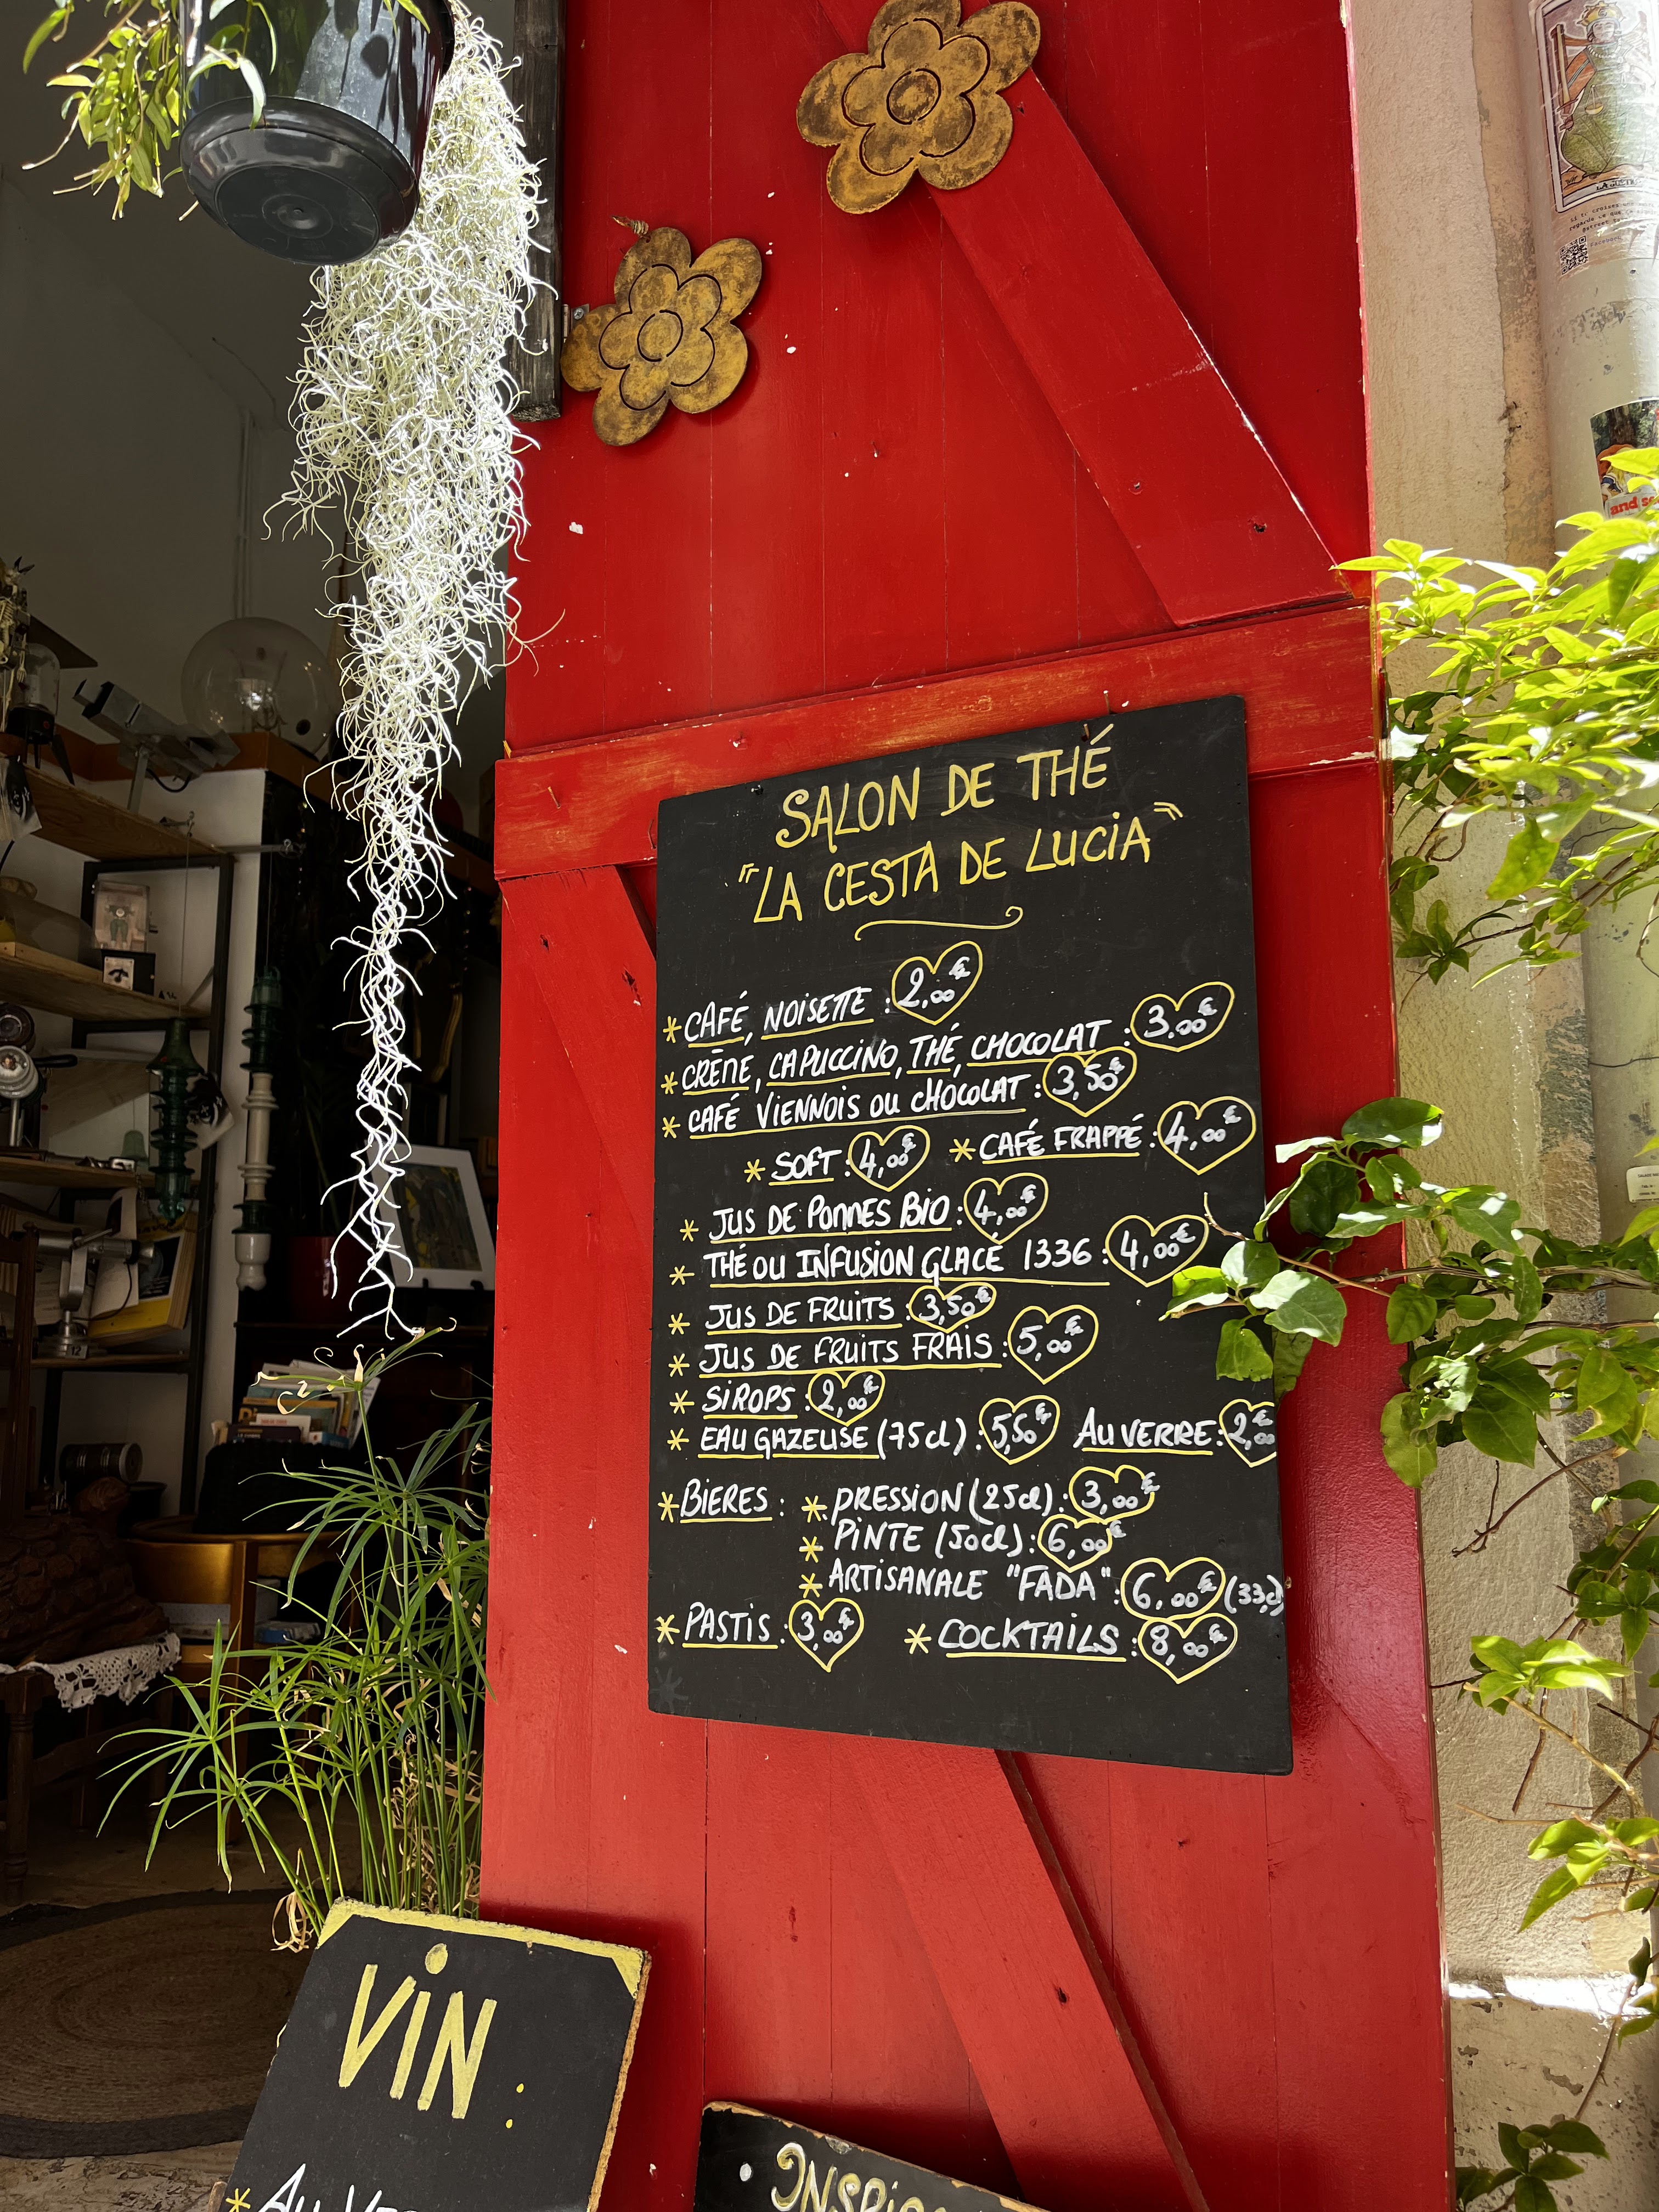 SALON DE THÉ
"LA CESTA DE LUCIA"
* CAFÉ, NOISETTE : 2,00€
* CRÈME, CAPUCCINO, THÉ, CHOCOLAT : 3,00€
* CAFÉ VIENNOIS OU CHOCOLAT : 3,50€
* SOFT : 4,00€ * CAFÉ FRAPPÉ : 4,00€
* JUS DE POMMES BIO : 4,00€
* THÉ OU INFUSION GLACÉ 1336 : 4,00€
* JUS DE FRUITS : 3,50€
* JUS DE FRUITS FRAIS : 5,00€
* SIROPS : 2,00€
* EAU GAZEUSE (75cl) : 5,50€ AU VERRE : 2,00€
* BIERES : * PRESSION (25cl) : 3,00€
* PINTE (50cl) : 6,00€
* ARTISANALE "FADA" : 6,00€ (33cl)
* PASTIS : 3,00€ * COCKTAILS : 8,00€
VIN :
* AU
and